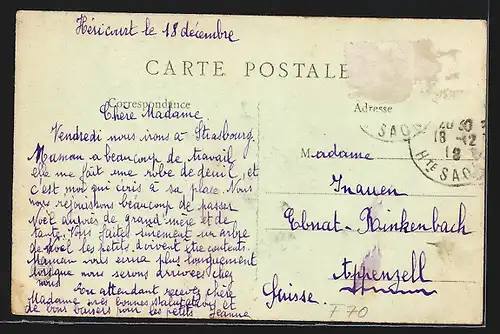 Héricourt le 18 décembre
CARTE POSTALE
Correspondance
Adresse
Chère Madame.
Vendredi nous irons à Strasbourg.
Maman a beaucoup de travail
elle me fait une robe de deuil, et
c'est moi qui écris à sa place. Nous
nous rejouissons beaucoup de passer
Noël auprès de grand'mère et de
tante. Vous faites surement un arbre
de Noël les petits doivent être contents.
Maman vous ecrira plus longuement
lorsque nous serons arrivées chez
nous
En attendant recevez chère
Madame mes bonnes salutations et
de bons baisers pour les petits Jeanne
Madame
Inauen
Ebnat-Rinkenbach
Appenzell
Suisse.
F 70
18 -12
Hte SAO